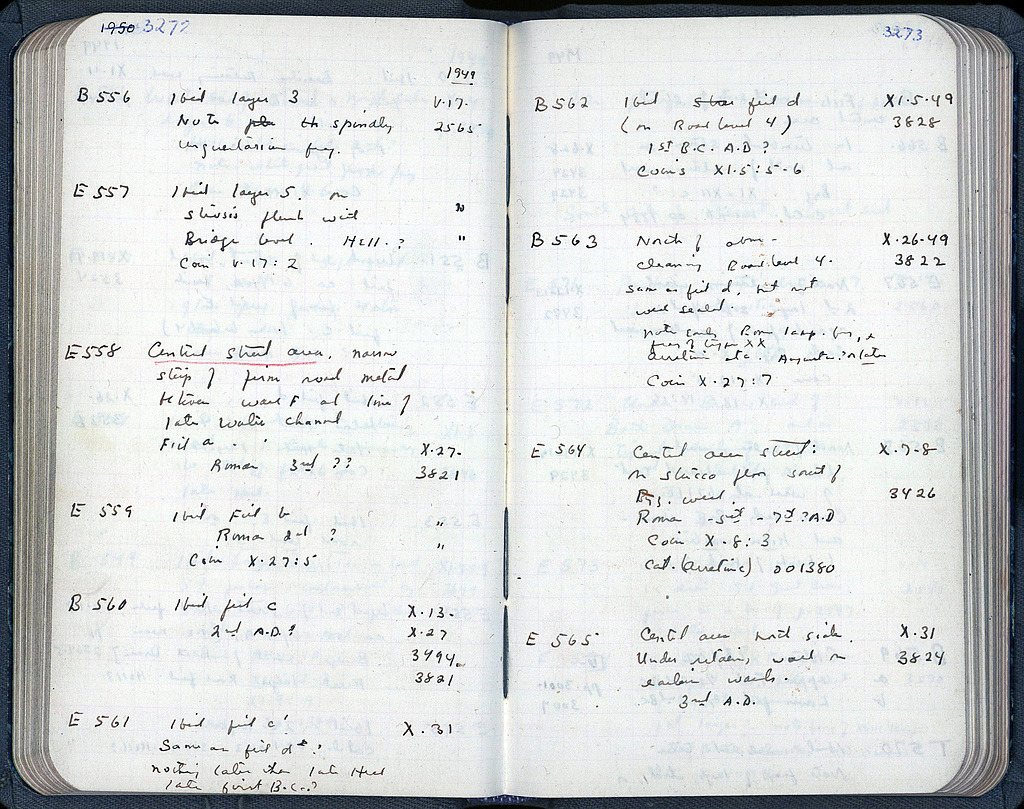 1950 3272
1949
B 556 Ibid layer 3 V·17·
Note spindly 2565
unguentarium frag.
E 557 Ibid layer 5. on "
stucco floor with
Bridge level. Hell.? "
Coin V·17:2
E 558 Central street area, narrow
strip of firm road metal
between wall F at line of
late water channel
Fill a X·27·
Roman 3rd ?? 3821
E 559 Ibid Fill b "
Roman 2nd ? "
Coin X·27:5
B 560 Ibid fill c X·13·
2nd A.D? X·27
3494
3821
E 561 Ibid fill c' X·31
Same as fill d ?
nothing later than late Hell
late first B.C.?
3273
B 562 Ibid fill d X1·5·49
(on Road level 4) 3828
1st B.C. A.D?
Coins X1·5:5-6
B 563 North of above X·26·49
cleaning Road level 4. 3822
same as fill d, but not
well sealed.
note early Rom lamp frs,
frag of type XX
arretine etc. Augustan? or later
Coin X·27:7
E 564 Central area street: X·7-8
on stucco floor south of
Byz. wall. 3426
Roman - 7th? A.D
Coin X·8:3
Cat. (arretine) 001380
E 565 Central area north side. X·31
Under retain, wall on 3824
earlier walls.
3rd A.D.